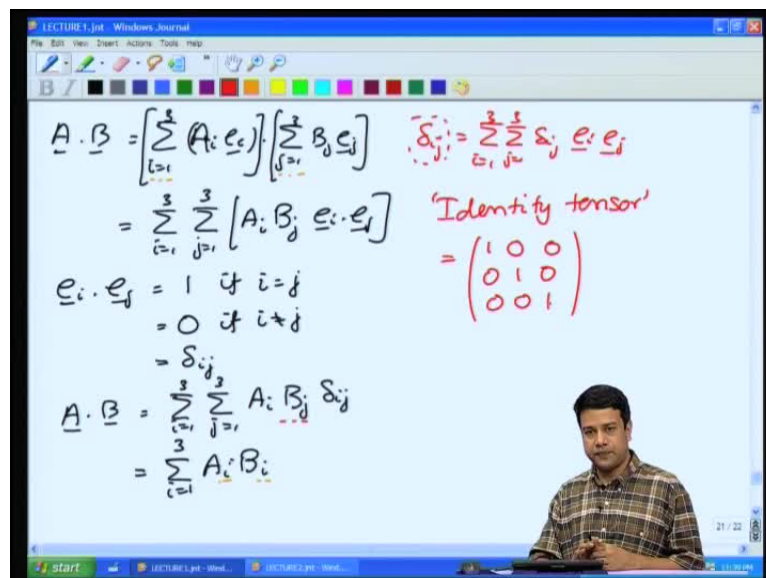 LECTURE1.jnt - Windows Journal
File Edit View Insert Actions Tools Help
B I
A̲ · B̲ = [∑_{i=1}^{3} (A_i e̲_i)] · [∑_{j=1}^{3} B_j e̲_j]
= ∑_{i=1}^{3} ∑_{j=1}^{3} [A_i B_j e̲_i · e̲_j]
e̲_i · e̲_j = 1 if i = j
= 0 if i ≠ j
= δ_{ij}
A̲ · B̲ = ∑_{i=1}^{3} ∑_{j=1}^{3} A_i B_j δ_{ij}
= ∑_{i=1}^{3} A_i B_i
δ_{ij} = ∑_{i=1}^{3} ∑_{j=}^{3} δ_{ij} e̲_i e̲_j
'Identity tensor'
= ( 1 0 0
0 1 0
0 0 1 )
21 / 22
start
LECTURE1.jnt - Wind...
LECTURE2.jnt - Wind...